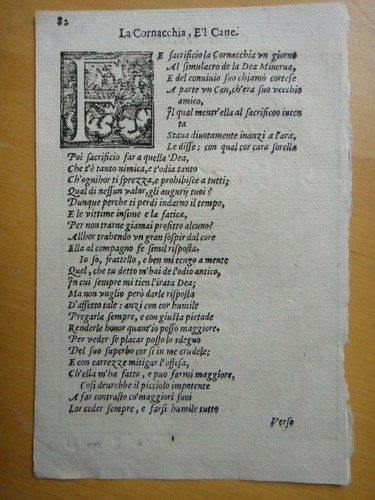 82
La Cornacchia, E'l Cane.
FE sacrificio la Cornacchia vn giorno
Al simulacro de la Dea Minerua,
E del conuiuio suo chiamò cortese
A parte vn Can, ch'era suo vecchio
amico,
Il qual mentr'ella al sacrificio inten
ta
Staua diuotamente inanzi a l'ara,
Le disse: con qual cor cara sorella
Poi sacrificio far a quella Dea,
Che t'è tanto nimica, e t'odia tanto
Ch'ognihor ti sprezza, e prohibisce a tutti;
Qual di nessun valor, gli augurÿ tuoi?
Dunque perche ti perdi indarno il tempo,
E le vittime insime e la fatica,
Per non trarne giamai profitto alcuno?
Allhor trahendo vn gran sospir dal core
Ella al compagno fe simil risposta.
Io so, frattello, e ben mi tengo a mente
Quel, che tu detto m'hai de l'odio antico,
In cui sempre mi tien l'irata Dea;
Ma non voglio però darle risposta
D'affetto tale: anzi con cor humile
Pregarla sempre, e con giusta pietade
Renderle honor quant'io posso maggiore,
Per veder se placar posso lo sdegno
Del suo superbo cor si in me crudele;
E con carrezze mitigar l'offesa,
Ch'ella m'ha fatto, e puo farmi maggiore,
Cosi deurebbe il picciolo impotente
A far contrasto co'maggiori suoi
Lor ceder sempre, e farsi humile tutto
Verso